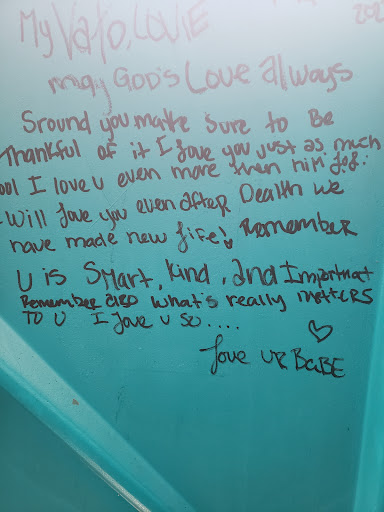 My Vato, LOVIE 202
may GOD'S Love always
Sround you make Sure to Be
Thankful of it I Love you just as much
ool I love u even more then him
Will Love you even after Deatth we
have made new Life! Remember
U is SMart, Kind, and Important
Remember also what's really matters
TO U I Love U so....
Love UR BaBE